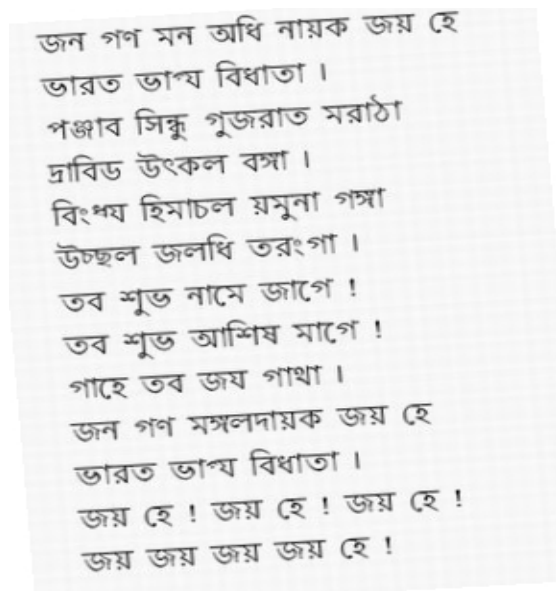 জন গণ মন অধি নায়ক জয় হে
ভারত ভাগ্য বিধাতা ।
পঞ্জাব সিন্ধু গুজরাত মরাঠা
দ্রাবিড উৎকল বঙ্গা ।
বিংধ্য হিমাচল য়মুনা গঙ্গা
উচ্ছল জলধি তরংগা ।
তব শুভ নামে জাগে !
তব শুভ আশিষ মাগে !
গাহে তব জয গাথা ।
জন গণ মঙ্গলদায়ক জয় হে
ভারত ভাগ্য বিধাতা ।
জয় হে ! জয় হে ! জয় হে !
জয় জয় জয় জয় হে !